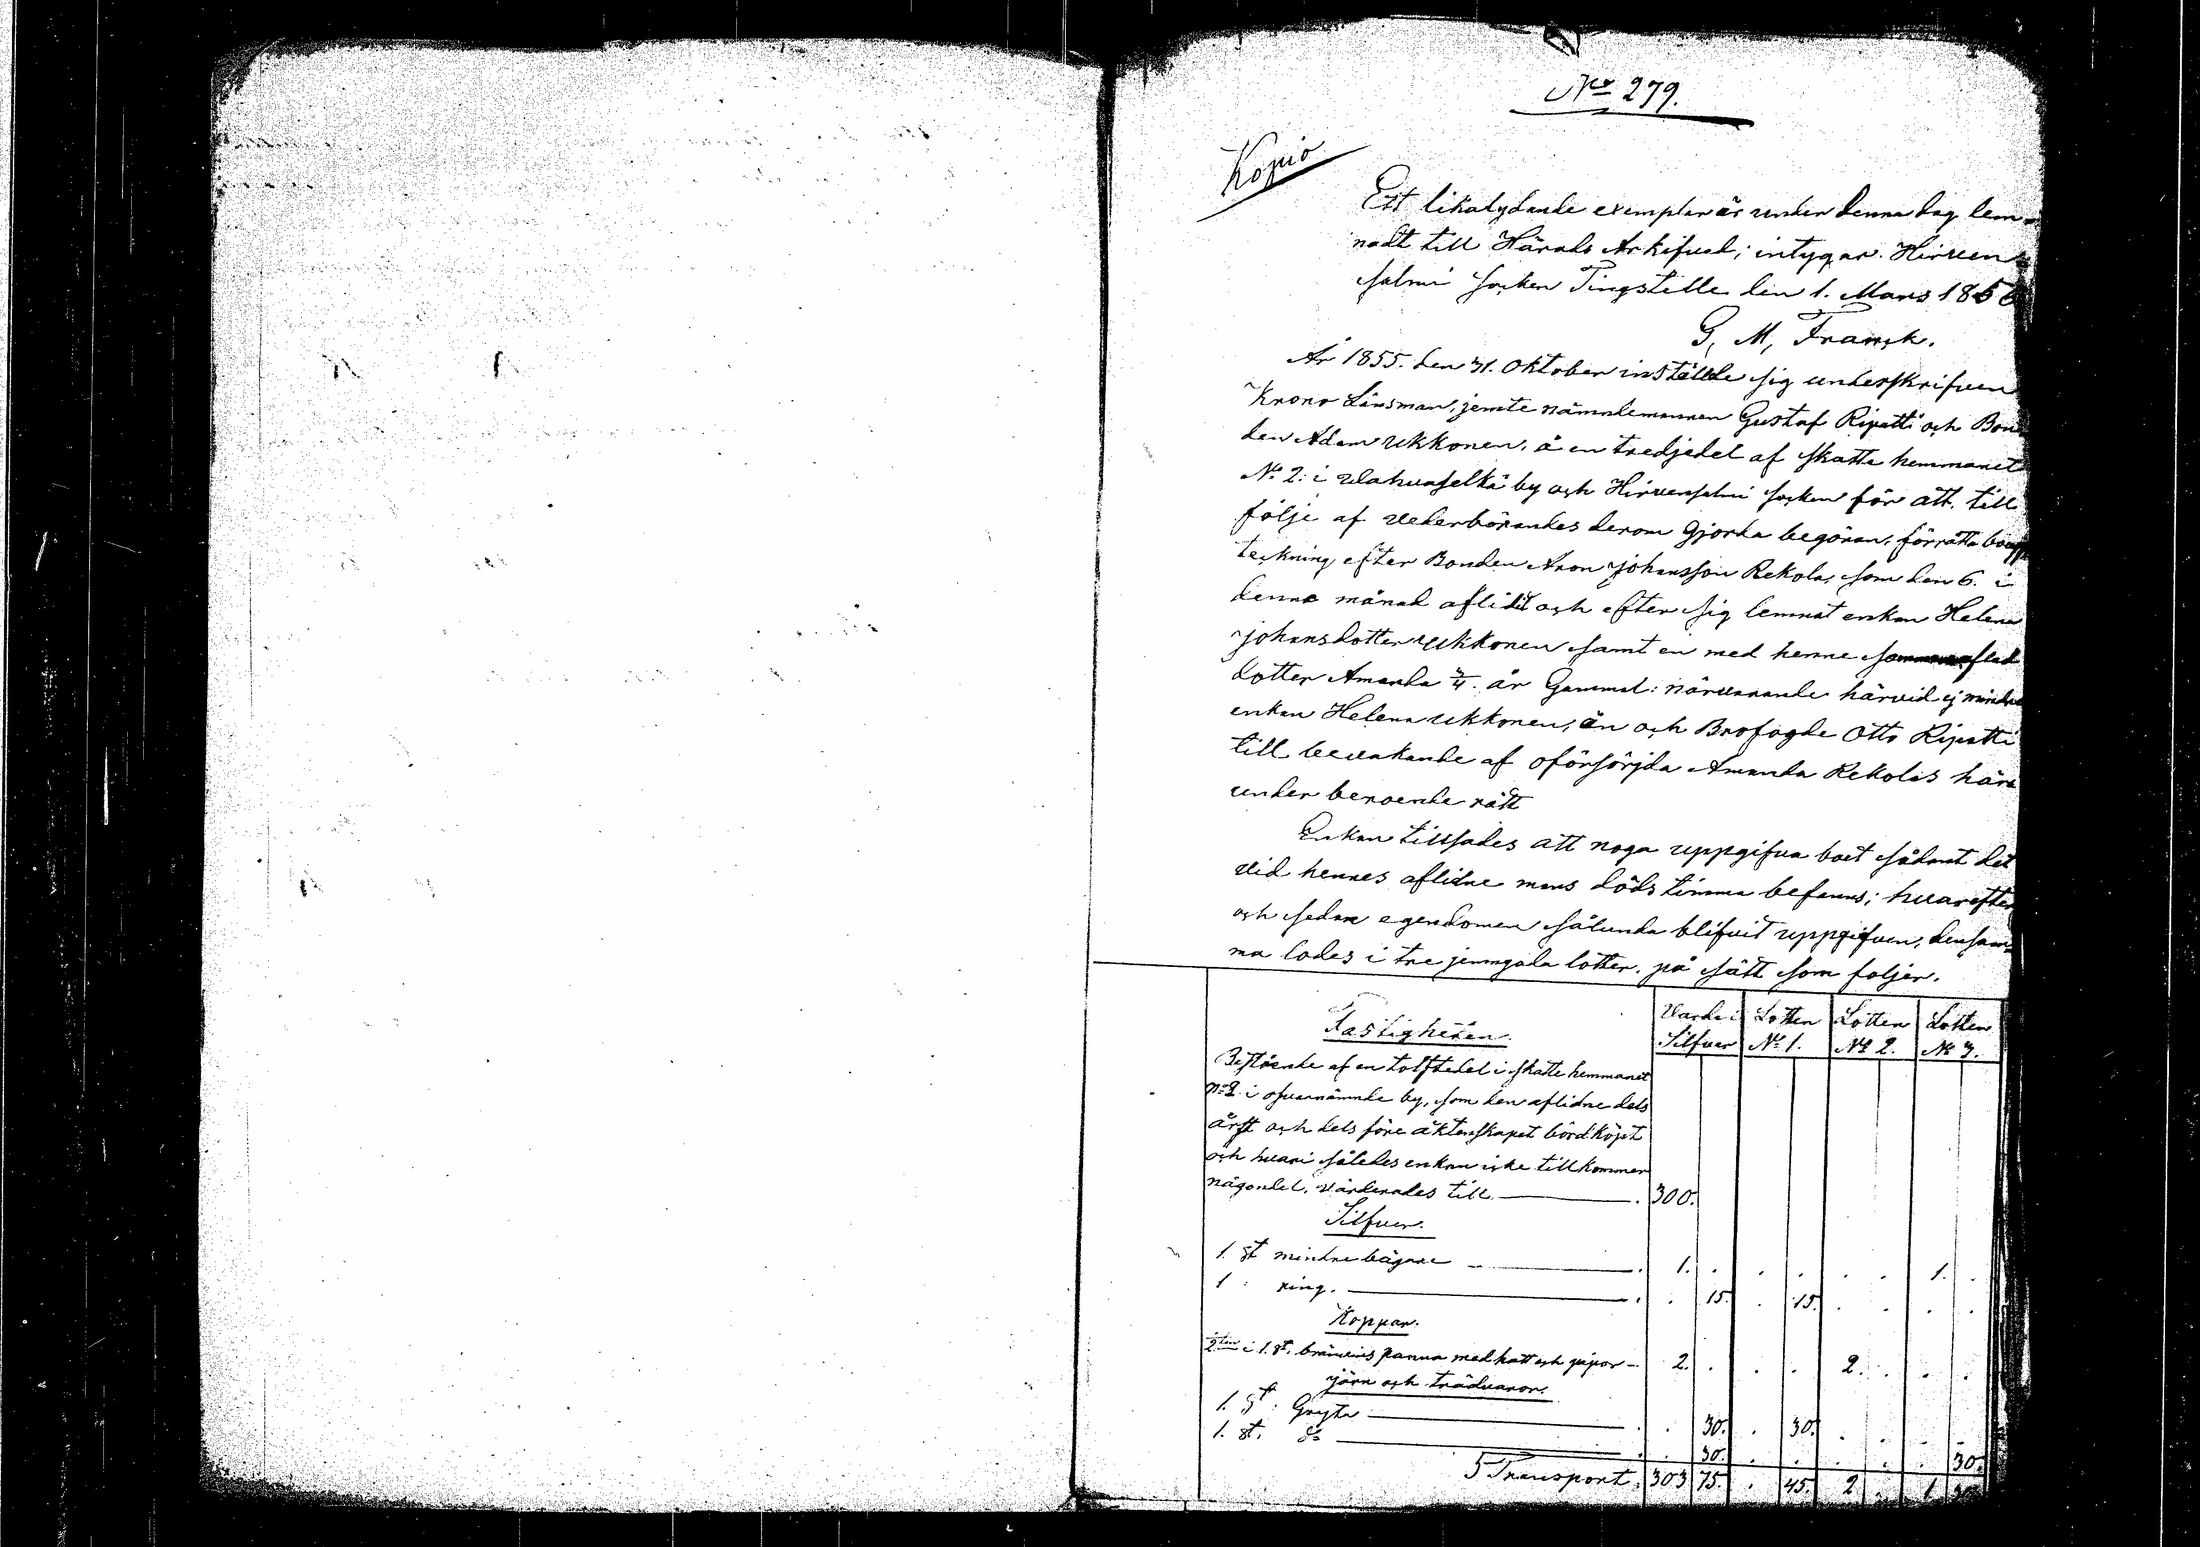 No 279.
Kopia
Ett likalydande exemplar är under denna dag lem-
nadt till Härads Arkifvet; intygar. Hirven-
salmi socken Tingställe den 1. Mars 1856
G, M, Franck.
År 1855. den 31. Oktober inställde sig underskrifven
Krono Länsman, jemte nämndemannen Gustaf Ripatti och Bon-
den Adam Ukkonen, å en tredjedel af skatte hemmanet
No 2: i Vahvaselkä by och Hirvensalmi socken för att, till
följe af vederbörandes derom gjorda begäran, förrätta boupp
teckning efter Bonden Aron Johansson Rekola, som den 6. i
denna månad aflidit och efter sig lemnat enkan Helena
Johansdotter Ukkonen samt en med henne sammanaflad
dotter Amanda 3/4. år Gammal: närvarande härvid ej mindre
enkan Helena Ukkonen, än och Brofogde Otto Ripatti
till bevakande af oförsörjda Amanda Rekolas här-
under beroende rätt
Enkan tillsades att noga uppgifva boet sådant det
vid hennes aflidne mans döds timma befanns; hvarefter
och sedan egendomen sålunda blifvit uppgifven, densam-
ma lades i tre jemngoda lotter, på sätt som följer.
Värde i Lotten Lotten Lotten
Fastigheten. Silfver No 1. No 2. No 3.
Bestående af en tolftedel i skatte hemmanet
No 2 i ofvannämnde by, som den aflidne dels
ärft och dels före äktenskapet bördköpt
och hvari således enkan icke tillkommer
någondel, värderades till 300.
Silfver.
1. st mindre bägare 1. . . . . . 1. .
1 " ring. . 15. . 15. . . . .
Koppar.
2ten i 1. st. bränvins panna med hatt och pipor 2. . . . 2. . . .
Järn och trädvaror.
1. st. Gryta . 30. . 30. . . . .
1. st. do . 30. . . . . . 30.
Transport 303 75. . 45. 2 . 1